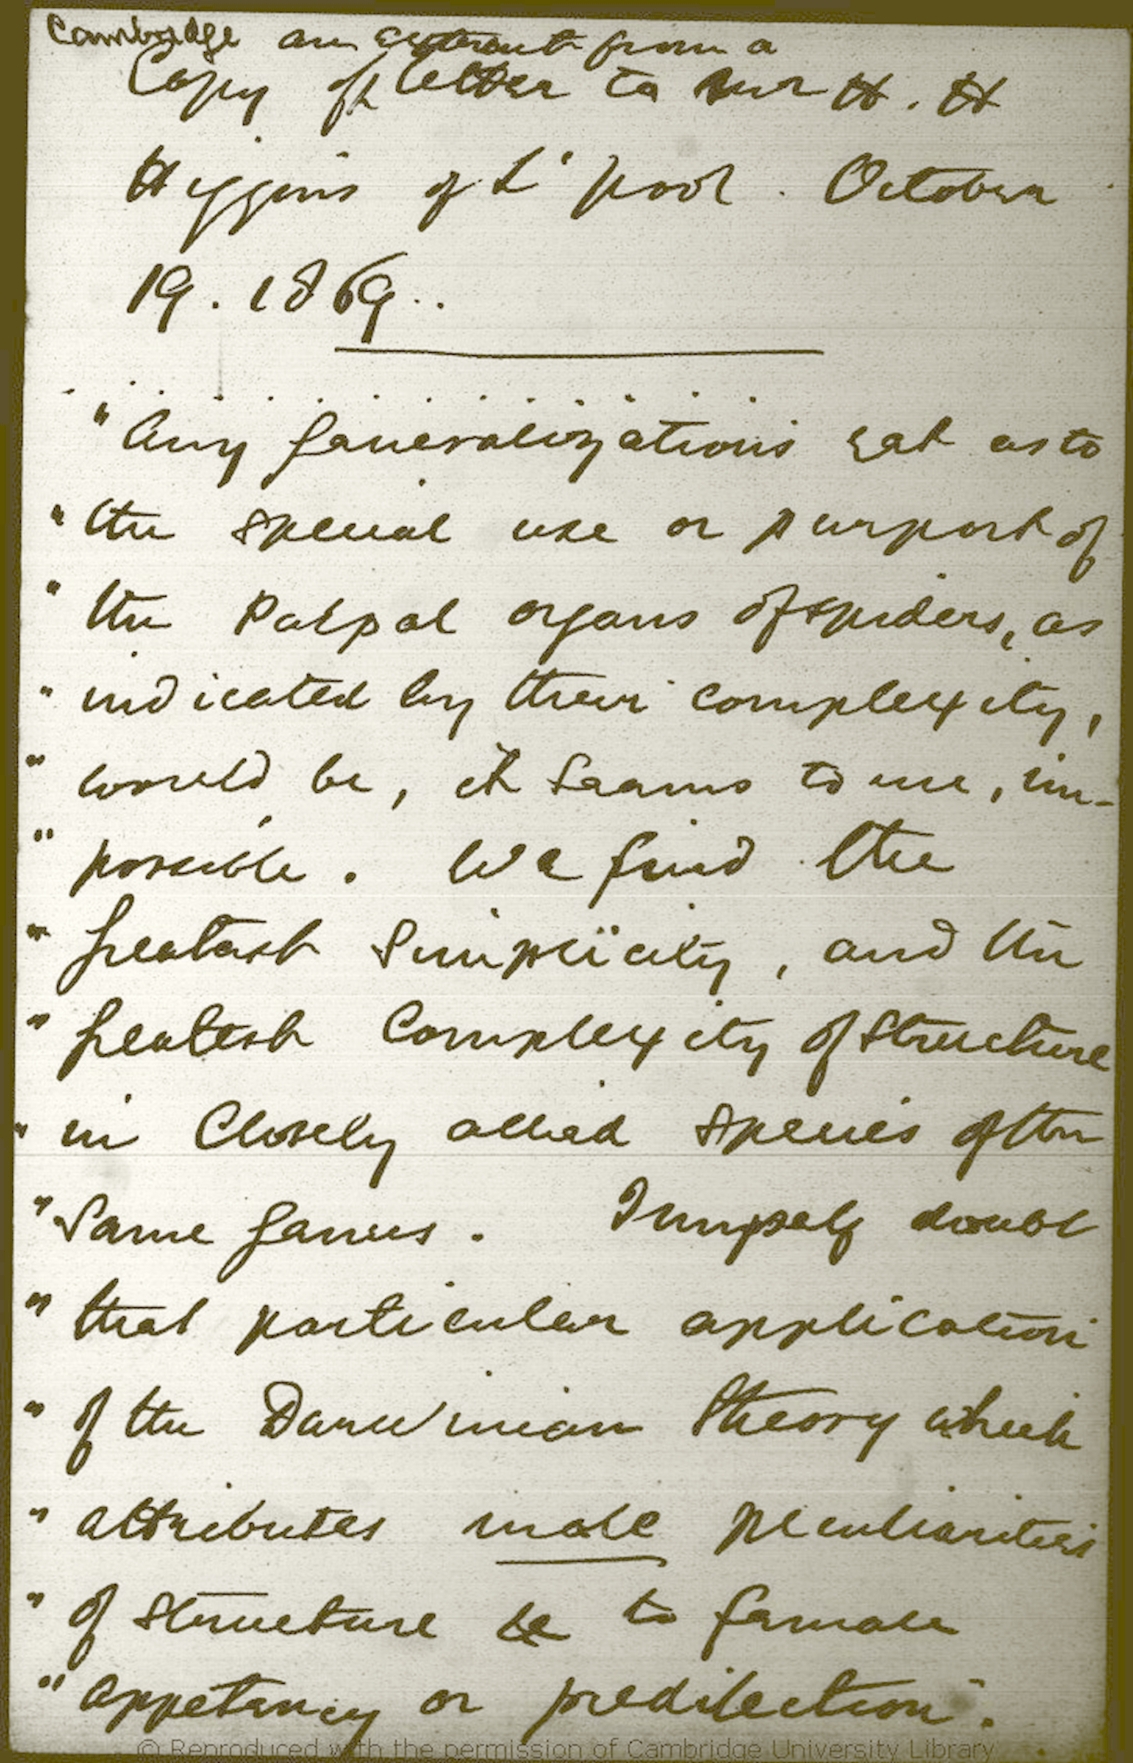 Cambridge an extract from a
Copy of letter to Revd H. H
Higgins of L'pool. October
19. 1869..
. . . . . . . . . .
"Any generalizations yet as to
"the special use or purport of
"the Palpal organs of spiders, as
"indicated by their complexity,
"would be, it seems to me, im-
"possible. We find the
"greatest Simplicity, and the
"greatest Complexity of Structure
"in Closely allied species of the
"Same genus. I myself doubt
"that particular application
"of the Darwinian theory which
"attributes male peculiarities
"of structure &c to female
"appetancy or predilection".
© Reproduced with the permission of Cambridge University Library